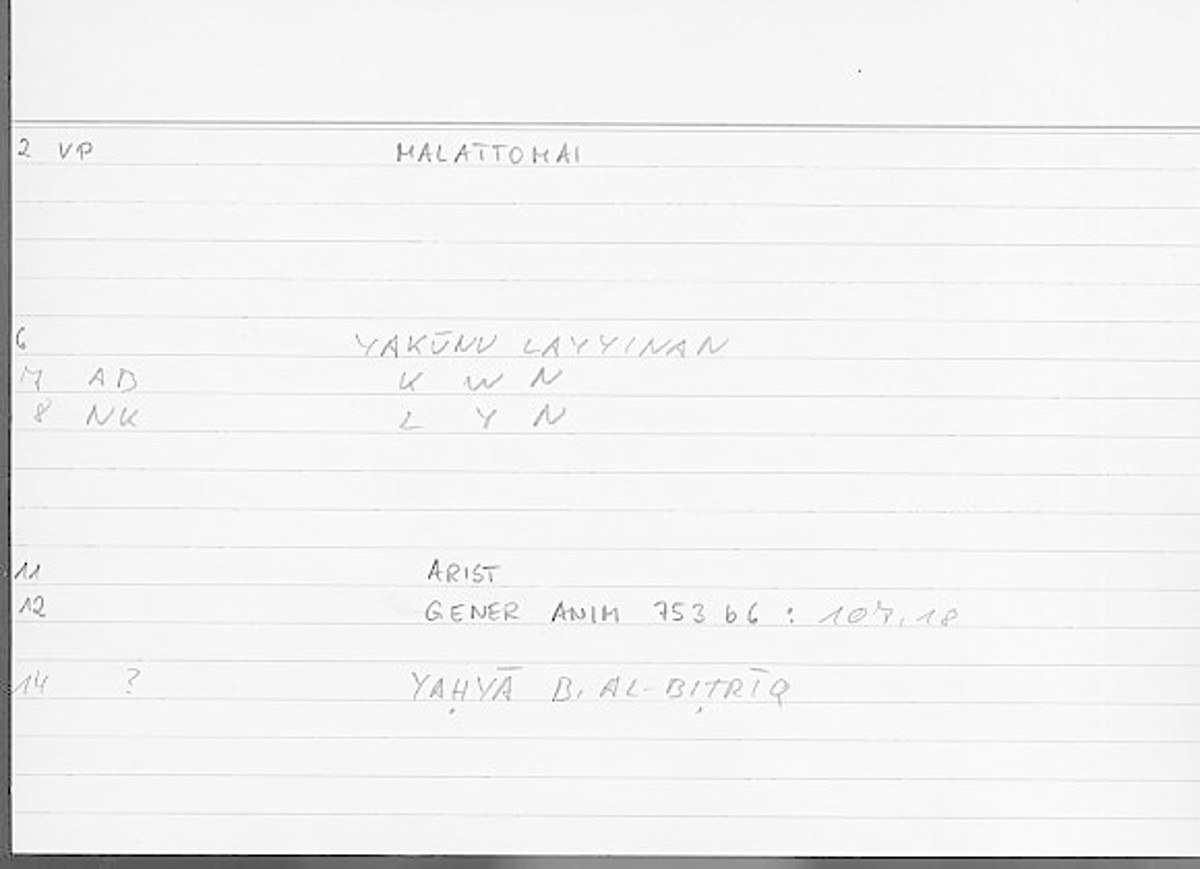 2 VP MALATTOMAI
6 YAKŪNU LAYYINAN
7 AD K W N
8 NK L Y N
11 ARIST
12 GENER ANIM 753 b 6 : 107.18
14 ? YAḤYĀ B. AL-BIṬRĪQ